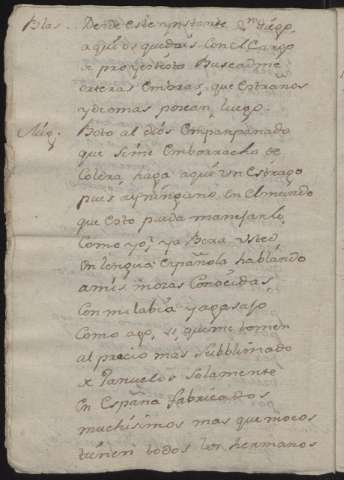 Blas. Desde este ynstante Dn Diego,
aqui os quedais con el Cargo
de proyectista Buscadme
que estraños
ydiomas posean, luego.
Mig. Boto al dios Empanpanado
que si me emborracho de
Colera haga aqui un estrago
pues ay ninguno en el mundo
que esto pueda manejarlo
Como yo, ya Bera usted
en lengua española hablando
a mis mozas Conocidas,
Con mi labia y agasajo
Como ago, si, que me tomen
al precio mas subblimado
de Panuelos solamente
en España fabricados
muchisimos mas que mocos
tienen todos los hermanos